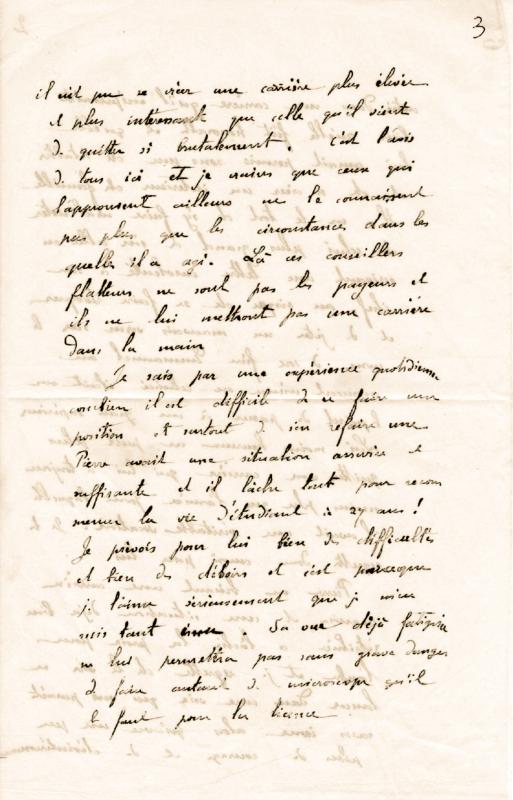 3
il eut pu se créer une carrière plus élevée
et plus intéressante que celle qu'il vient
de quitter si brutalement. C'est l'avis
de tous ici et je crains que ceux qui
l'approuvent ailleurs ne le connaissent
pas plus que les circonstances dans les
quelles il a agi. Là ces conseillers
flatteurs ne sont pas les payeurs et
ils ne lui mettront pas une carrière
dans la main
Je sais par une expérience quotidienne
combien il est difficile de se faire une
position et surtout de s'en refaire une
Pierre avait une situation assurée et
suffisante et il lâche tout pour recom
mencer la vie d'étudiant à 27 ans!
Je prévois pour lui bien des difficultés
et bien des déboires et c'est parceque
je l'aime sérieusement que je m'en
suis tant ému. Sa vue déjà fatiguée
ne lui permettra pas sans grave danger
de faire autant de microscope qu'il
le faut pour la licence